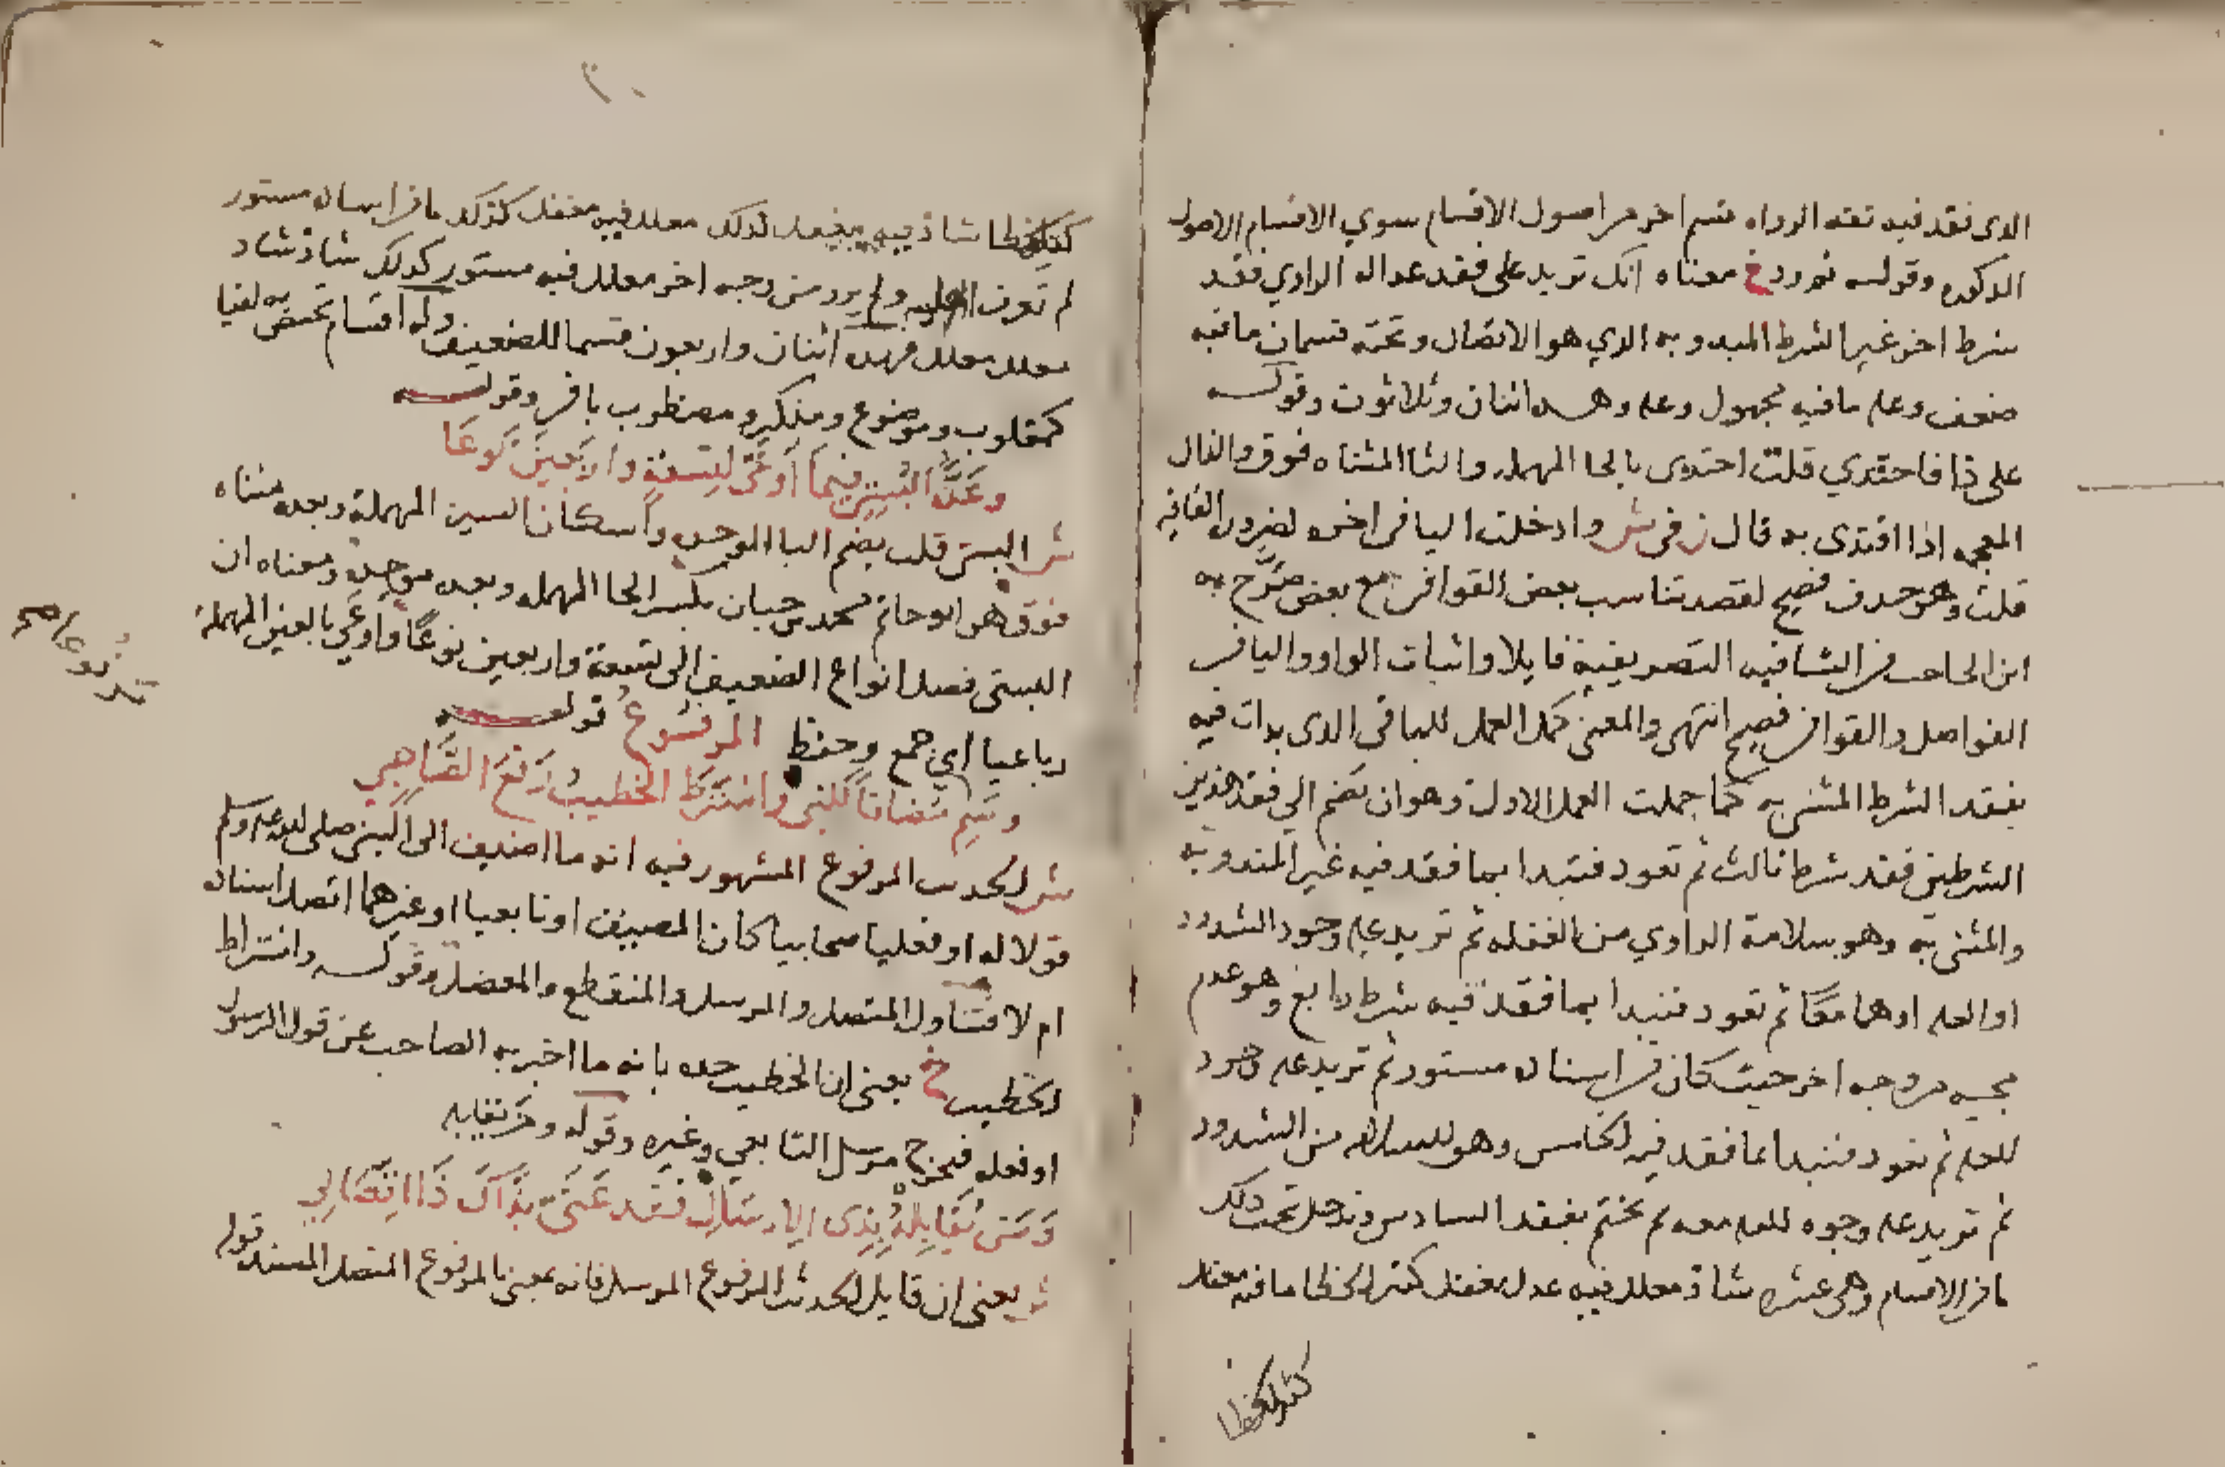 الذى فقد فيه ثقة الرواه قسم اخر من اصول الاقسام سوي الاقسام الاصول
المذكوره وقوله ثم زد خ معناه انك تزيد على فقد عداله الراوي فقد
شرط اخر غير الشرط المبدو به الذي هو الاتصال وتحته قسمان ما فيه
ضعف وعله ما فيه مجهول وعله وهذه اثنان وثلاثون وقوله
على ذا فاحتذي قلت احتذى بالحا المهمله والتا المثناه فوق والذال
المعجمه اذا اقتدى به قال ن في ش وادخلت اليا في اخره لضروره القافيه
قلت وهو حذف فصيح لقصد تناسب بعض القوافي مع بعض صرَّح به
ابن الحاجب في الشافيه التصريفية قايلا واثبات الواو واليا في
الفواصل والقوافي فصيح انتهى والمعنى كمل العمل للباقي الذى بدات فيه
بفقد الشرط المثنى به كما جملت العمل الاول وهو ان تضم الي فقد هذين
الشرطين فقد شرط ثالث ثم تعود فتبدا بما فقد فيه غير المبدو به
والمثنى به وهو سلامة الراوي من الغفله ثم تزيد عليه وجود الشذوذ
او العله او هما معًا ثم تعود فتبدا بما فقد فيه شرط رابع وهو عدم
مجيه من وجه اخر حيث كان في اسناده مستور ثم تزيد عليه وجود
العله ثم تعود فتبدا بما فقد فيه الخامس وهو السلامه من الشذوذ
ثم تزيد عليه وجوه العله معه ثم تختم بفقد السادس وتدخل تحت ذلك
ما في الاقسام وهي عشره شاذ معلل فيه عدل مغفل كثير الخطا ما فيه مغفل
كثير الخطا
كثير الخطا شاذ فيه مغفل كذلك معلل فيه مغفل كذلك ما في اسناده مستور
لم تعرف اهليته ولم يرد من وجه اخر معلل فيه مستور كذلك شاذ شاذ
معلل معلل فهذه اثنان واربعون قسما للضعيف وله اقسام تختص به لقبا
كمقلوب وموضوع ومنكر ومضطرب باقي وقوله
وَعَدَّه البُسْتِيْ فيمَا اَوْعَى لِتِسعَةٍ وارْبَعِينَ نَوعَا
ش البستى قلت بضم البا الموحده واسكان السين المهملة وبعده مثناه
فوق هو ابو حاتم محمد بن حبان بكسر الحا المهمله وبعده موحده ومعناه ان
البستى فصل انواع الضعيف الى تسعة واربعين نوعًا واوعَى بالعين المهملة
رباعيا اي جمع وحفظ المرفُوعُ قوله
وسَمِّ مَرْفُوعًا مُضَافًا للنبي واشترَط الخطيبُ رَفْعَ الصَّاحِبِ
ش الحديث المرفوع المشهور فيه انه ما اضيف الى النبى صلى الله عليه وسلم
قولا له او فعلا صحابيا كان المضيف او تابعيا او غيرهما اتصل اسناده
ام لا فتناول المتصل والمرسل والمنقطع والمعضل وقوله واشتراط
الخطيب خ يعني ان الخطيب حده بانه ما اخبر به الصاحب عن قول الرسول
او فعله فيخرج مرسل التابعي وغيره وقوله ومن يقابله
وَمَنْ يُقَابِلْهُ بِذِى الاِرسَالِ فقد عَنَى بِذَاكَ ذَا اتِّصَالِ
ش يعني ان قايل الحديث المرفوع المرسل فانه يعني بالمرفوع المتصل المسند قوله